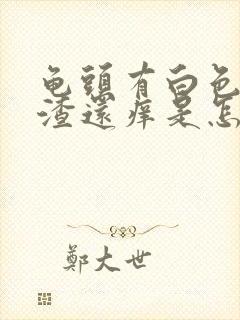 龟頭有白色
渣還痒是怎
鄭大世